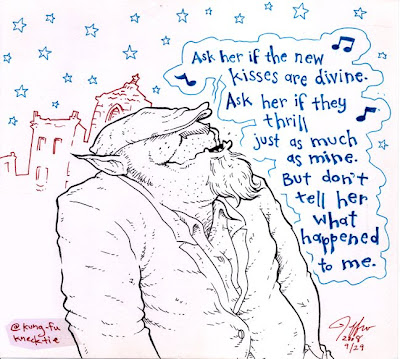 Ask her if the new
kisses are divine.
Ask her if they
thrill
just as much
as mine.
But don't
tell her
what
happened
to me.
@ kung-fu
knecktie
2008
9/29